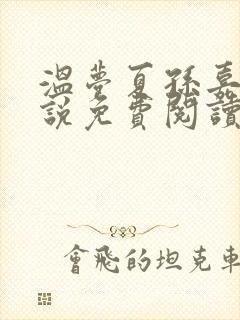 溫夢夏孫嘉
說免費閱讀
會飛的坦克車